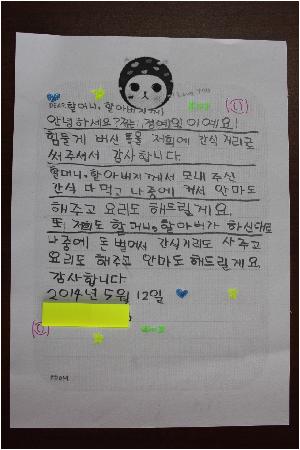 I LOVE YOU
DEAR.할머니, 할아버지께
안녕하세요? 저는, 정예일이예요!
힘들게 버신 돈을 저희에 간식 거리로
써주셔서 감사합니다.
할머니, 할아버지께서 보내 주신
간식 다 먹고 나중에 커서 안마도
해주고 요리도 해드릴게요.
또, 저희도 할머니, 할아버가 하신대로
나중에 돈 벌어서 간식거리도 사주고
요리도 해주고 안마도 해드릴게요.
감사합니다
2014년 5월 12일
FROM